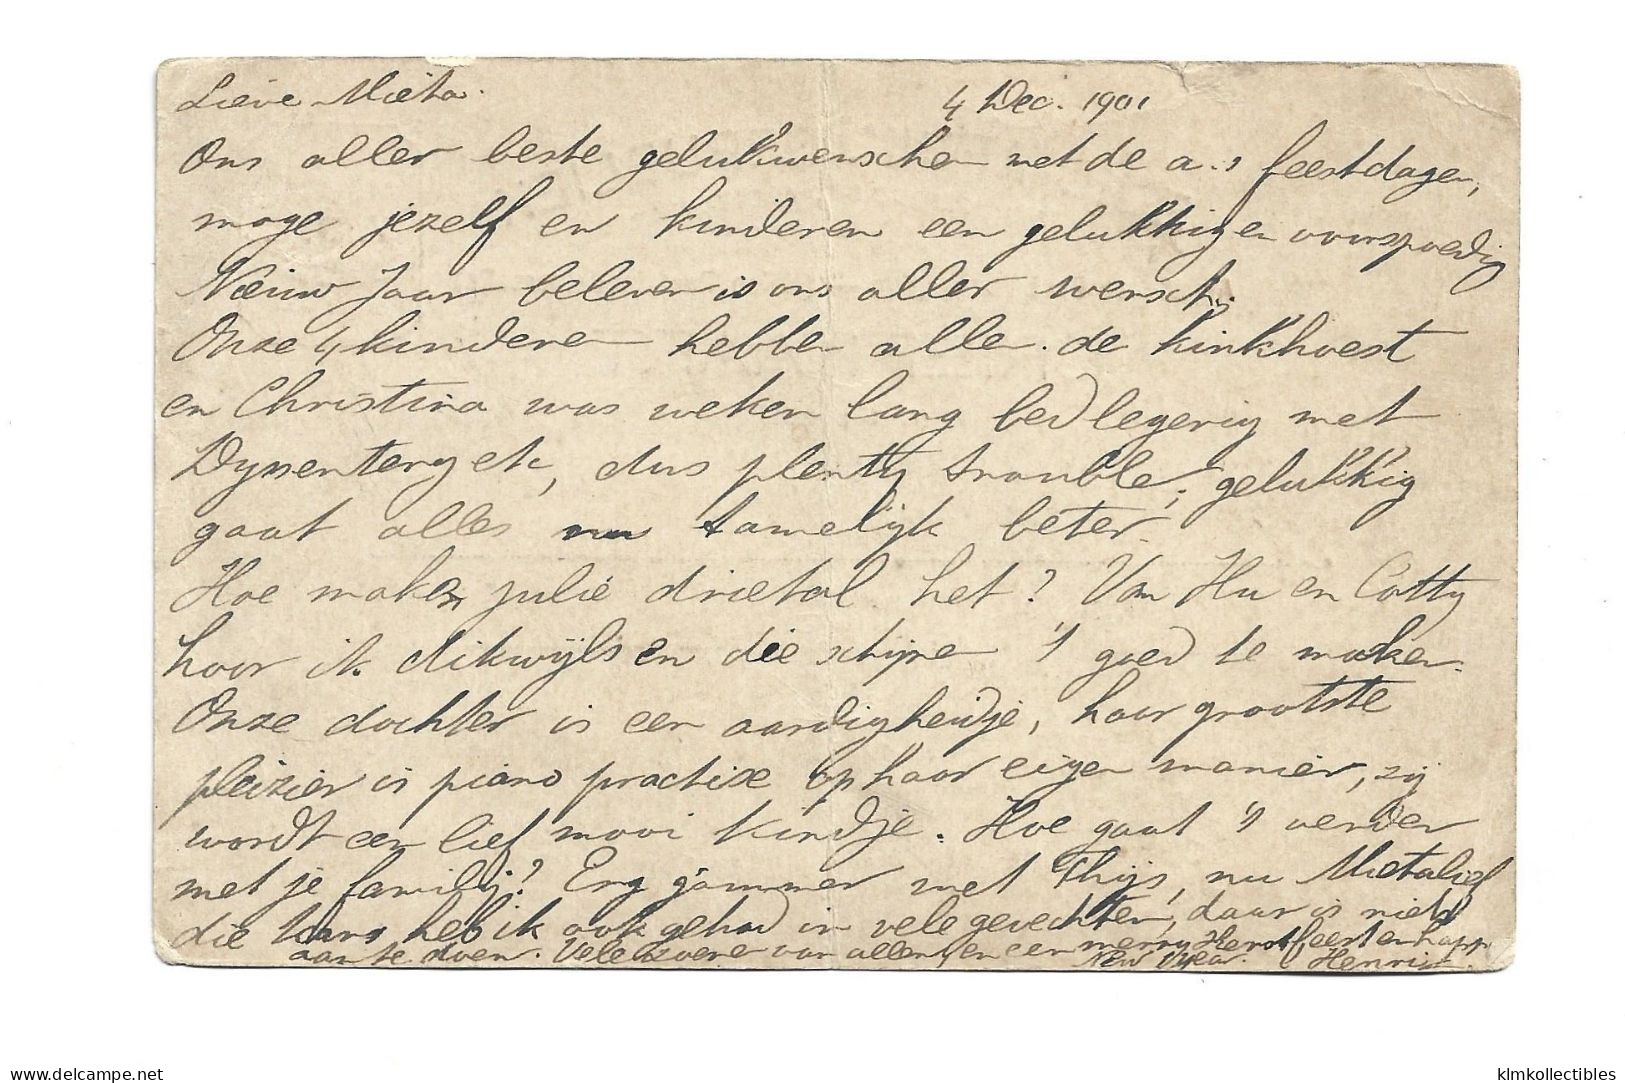 Lieve Mieta. 4 Dec. 1901
Ons aller beste gelukwenschen met de a.s feestdagen,
moge jezelf en kinderen een gelukkig en voorspoedig
Nieuw Jaar beleven is ons aller wensch;
Onze 4 kinderen hebben allen de kinkhoest
en Christina was weken lang bedlegerig met
Dyssentery etc, dus plenty trouble; gelukkig
gaat alles nu tamelijk beter.
Hoe maken julie drietal het? Van Hu en Cotty
hoor ik dikwijls en die schijnen 't goed te maken.
Onze dochter is een aardigheidje, haar grootste
pleizier is piano practise op haar eigen manier, zij
wordt een lief mooi kindje. Hoe gaat 't verder
met je familij? Erg jammer met Thijs, nu Mieta lief
die kans heb ik ook gehad in vele gevechten, daar is niets
aan te doen. Vele zoenen van allen, en een merry Kerstfeest en happy
New Year. Henri
delcampe.net
klmkollectibles